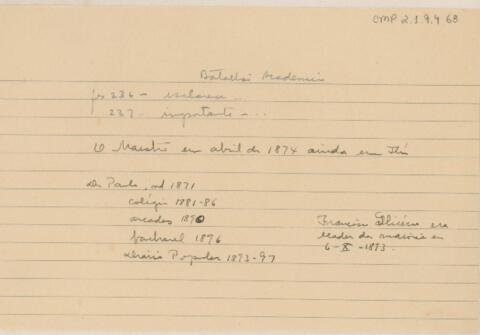 CMP 2.1.9.4 68
Batalhão Academico
fs 236 - esclarece ..
237 - importante - ..
O Maestro em abril de 1874 ainda em Itú
de Paulo, 1871
colégio 1881-86
arcadas 1890
bacharel 1896
Diário Popular 1893-97
Francisco Glicério era
leader da maioria em
6-X-1893.